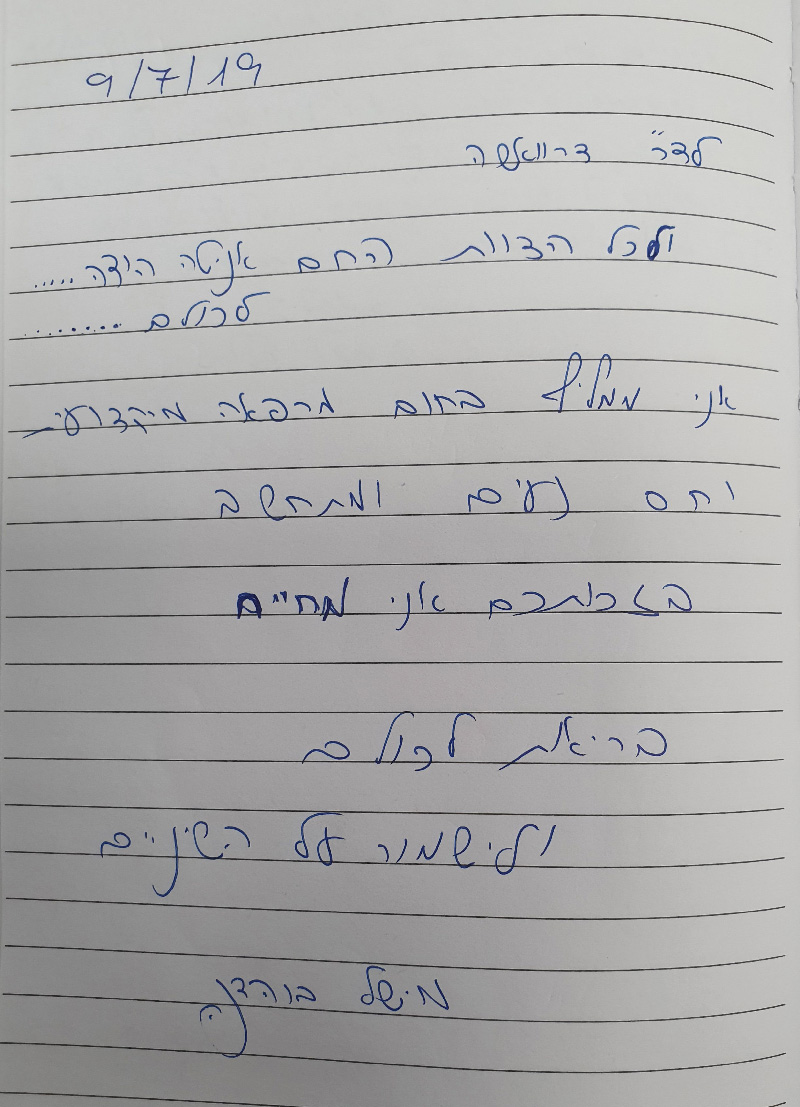 9/7/19
לדר" דרוואשה
ולכל הצוות החם אניטה הודיה .....
לכולם .........
אני ממליץ בחום מרפאה מיקצועי
וחם נעים ומתחשב
בזכותכם אני מחיים
בריאות לכולם
ולישמור על השיניים
מישל